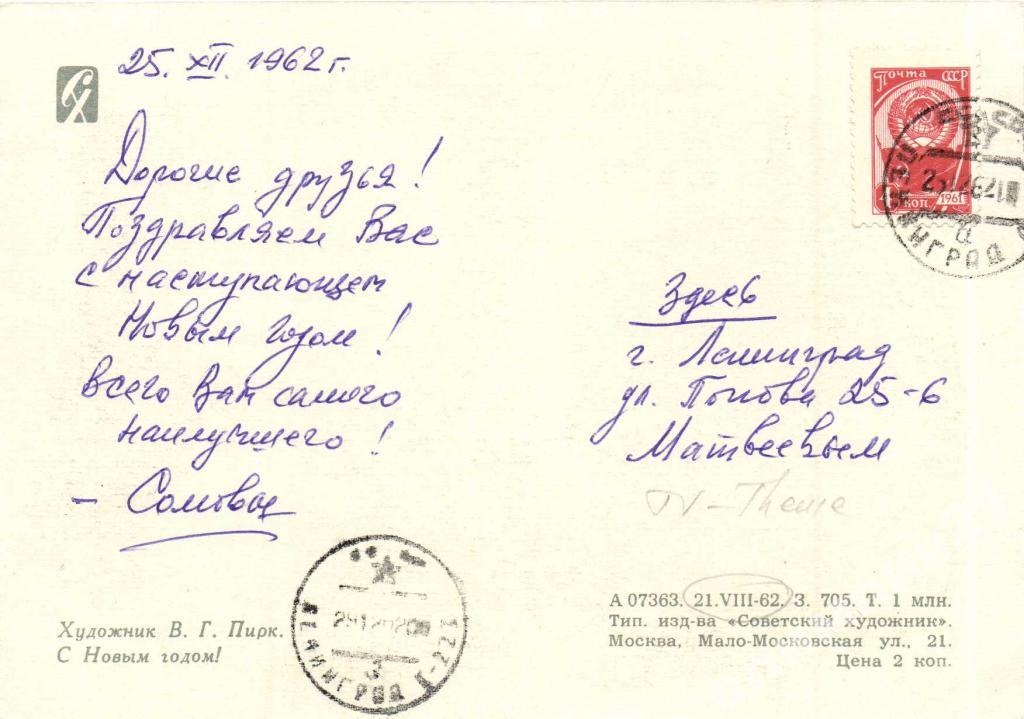 25. XII. 1962 г.
Дорогие друзья!
Поздравляем Вас
с наступающем
Новым годом!
Всего Вам самого
наилучшего!
– Сомовы
Почта СССР
коп. 1961
ЛЕНИНГРАД
Здесь
г. Ленинград
ул. Попова 25-6
Матвеевым
TV-Theme
ЛЕНИНГРАД
Художник В. Г. Пирк.
С Новым годом!
А 07363. 21.VIII-62. З. 705. Т. 1 млн.
Тип. изд-ва «Советский художник».
Москва, Мало-Московская ул., 21.
Цена 2 коп.